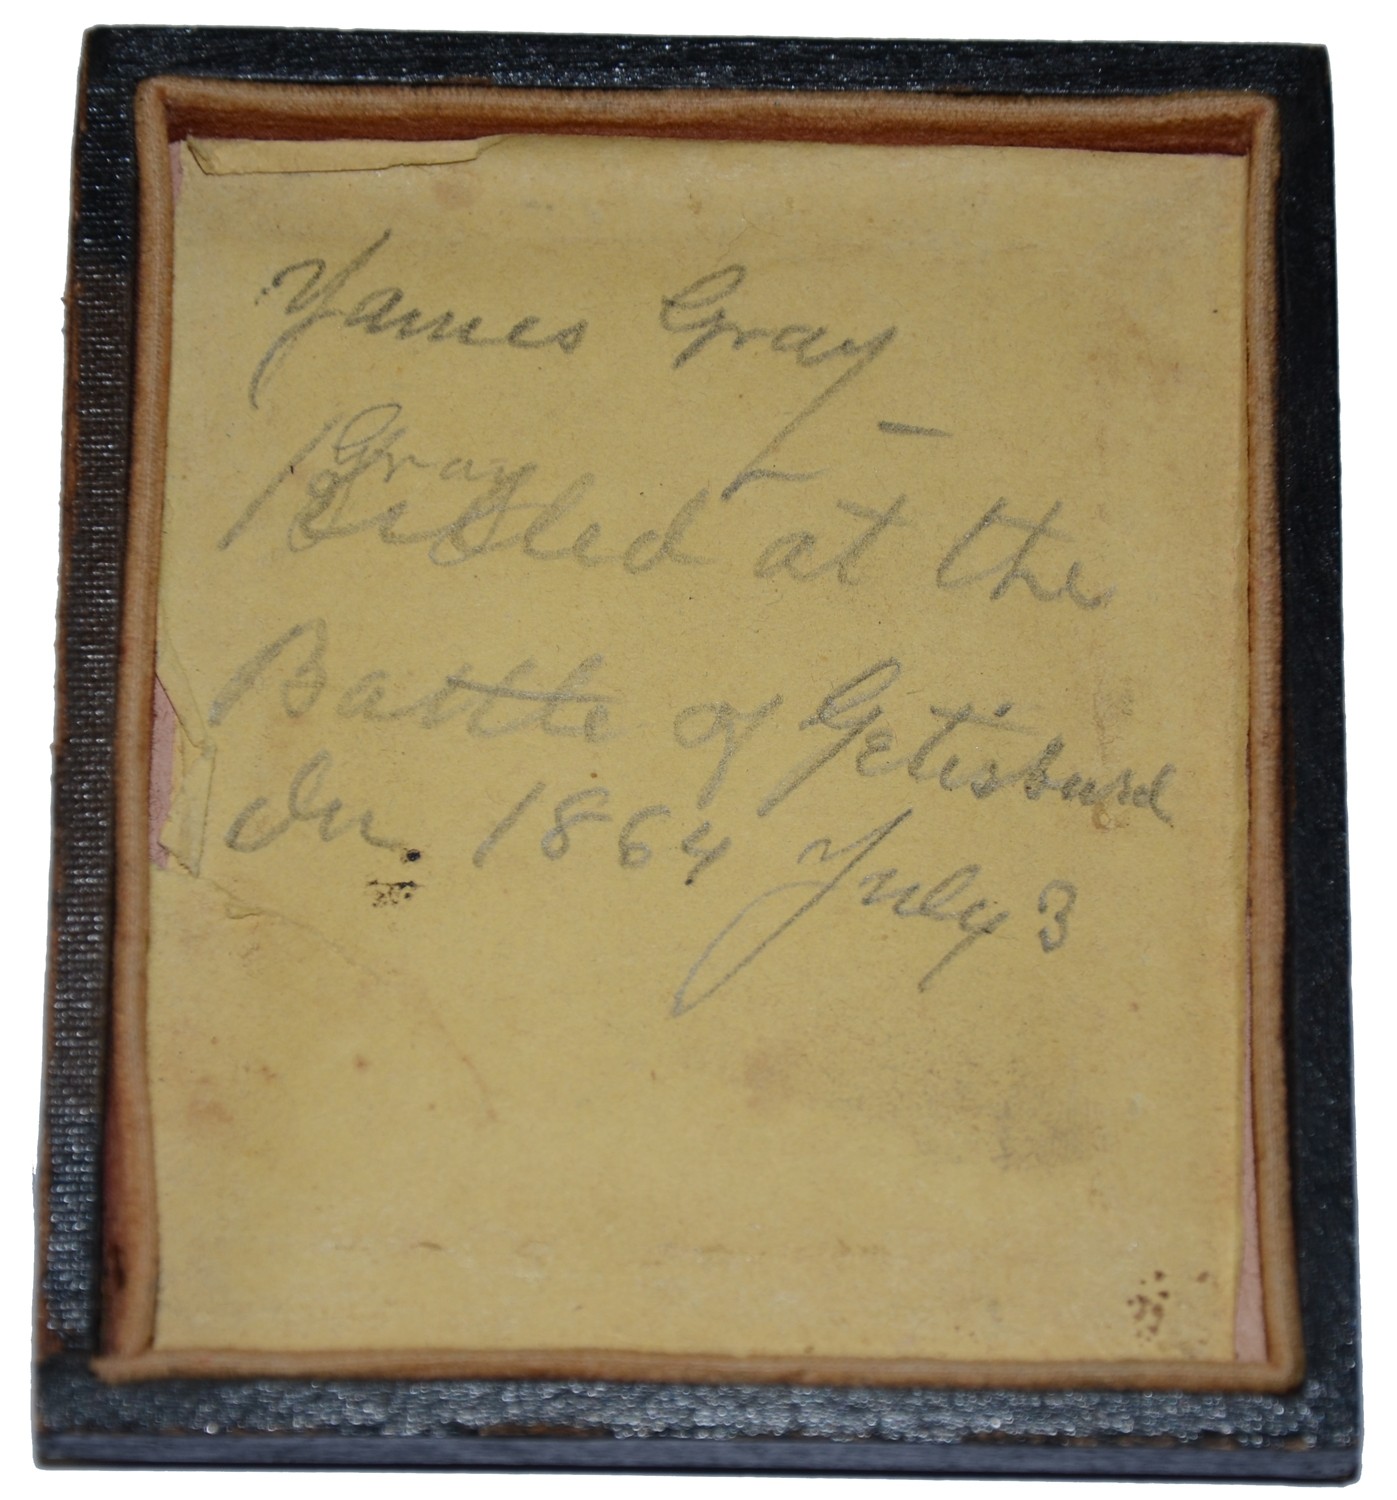 James Gray
Gray
Killed at the
Battle of Getisburd
In 1864 July 3